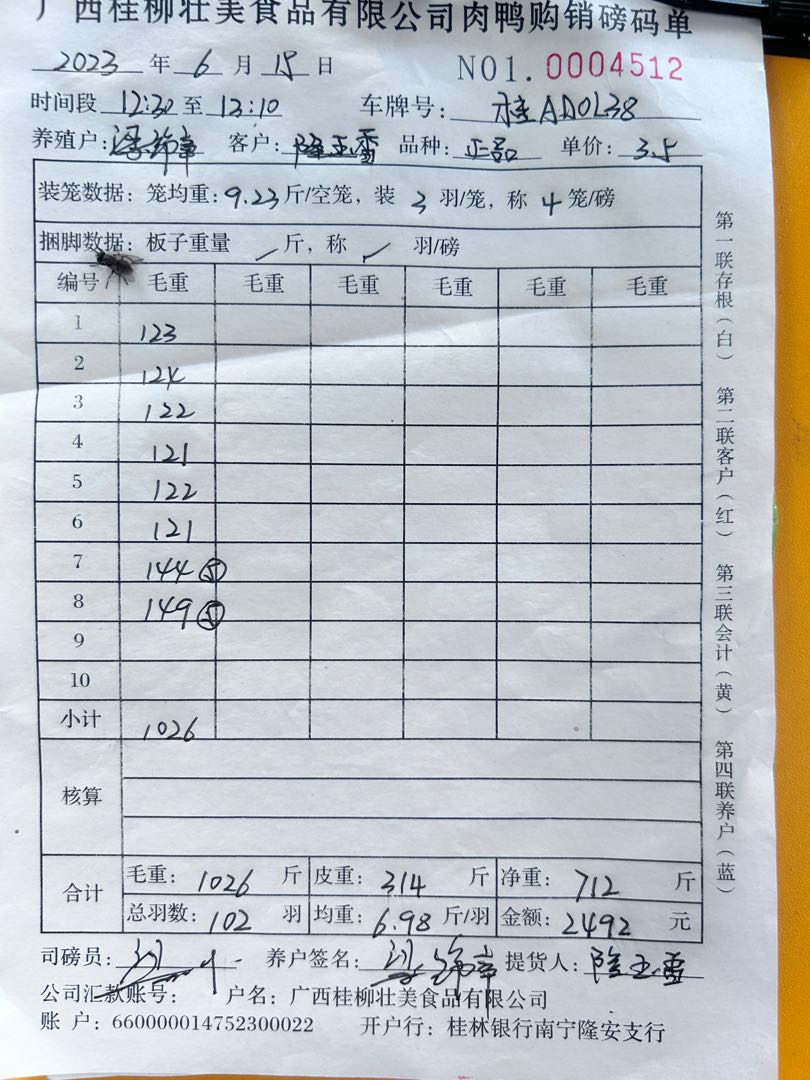 广西桂柳壮美食品有限公司肉鸭购销磅码单
2023 年 6 月 15 日 NO1. 0004512
时间段 12:30 至 13:10 车牌号: 桂AD0L38
养殖户: 客户: 隆玉雪 品种: 正品 单价: 3.5
装笼数据: 笼均重: 9.23 斤/空笼, 装 3 羽/笼, 称 4 笼/磅
捆脚数据: 板子重量 / 斤, 称 / 羽/磅
编号 毛重 毛重 毛重 毛重 毛重 毛重
1 123
2 124
3 122
4 121
5 122
6 121
7 144 ⑤
8 149 ⑤
9
10
小计 1026
核算
合计 毛重: 1026 斤 皮重: 314 斤 净重: 712 斤
总羽数: 102 羽 均重: 6.98 斤/羽 金额: 2492 元
司磅员: 养户签名: 提货人: 隆玉雪
公司汇款账号: 户名: 广西桂柳壮美食品有限公司
账 户: 660000014752300022 开户行: 桂林银行南宁隆安支行
第一联存根(白) 第二联客户(红) 第三联会计(黄) 第四联养户(蓝)